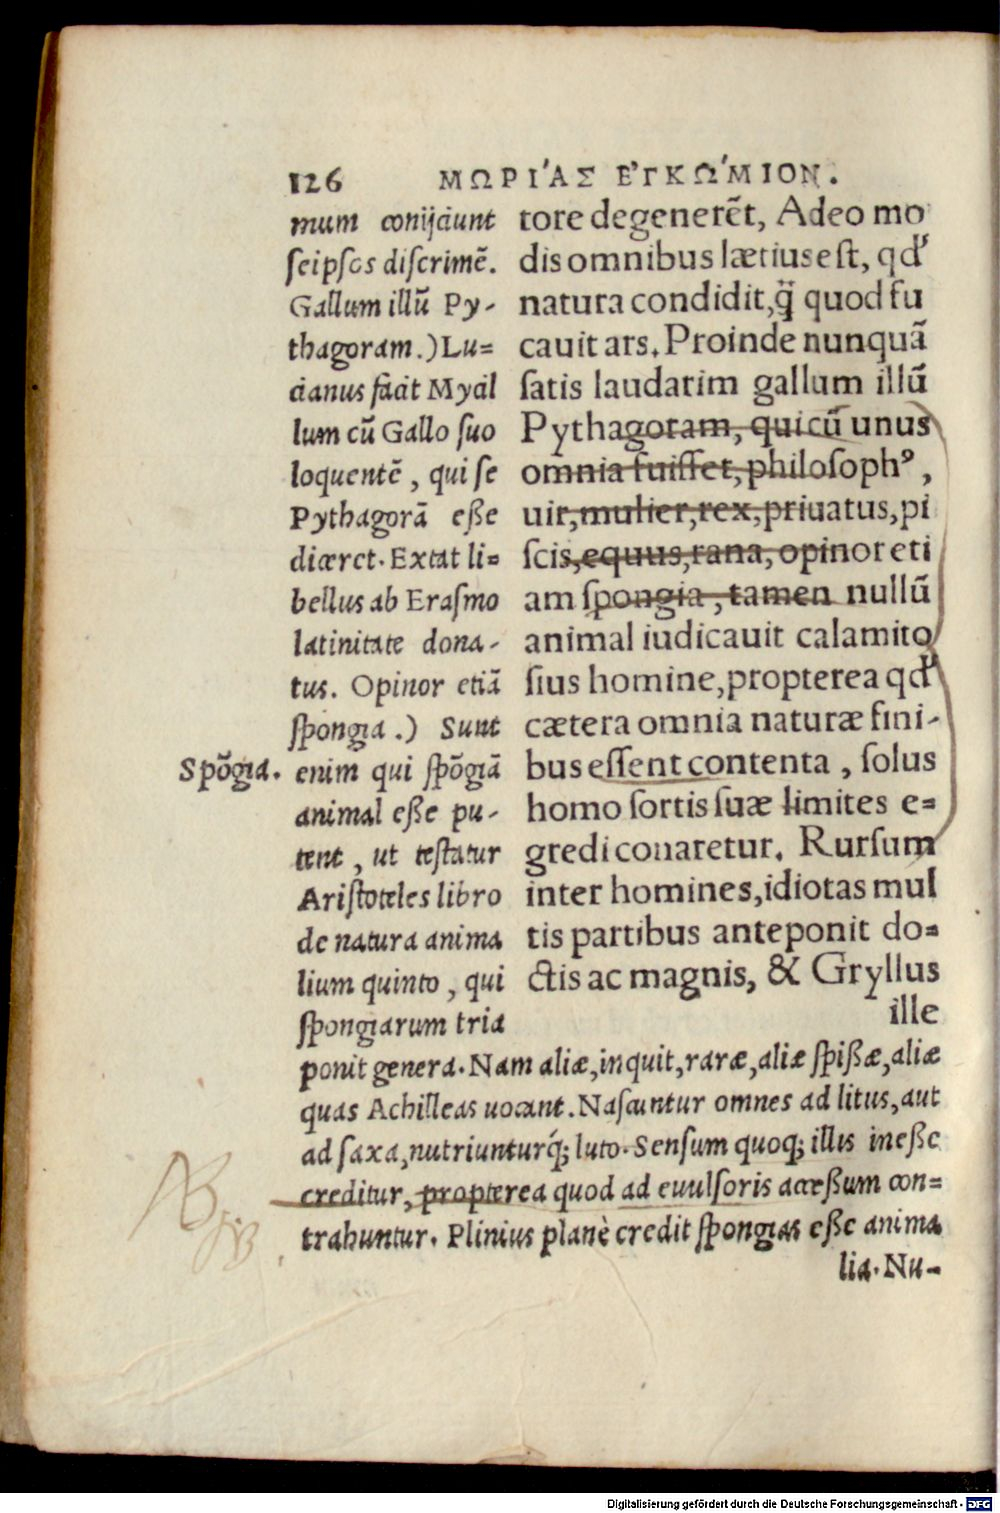 126 ΜΩΡΊΑΣ ΕΓΚΩ΄ΜΙΟΝ.
tore degenerēt, Adeo mo
dis omnibus lætius est, qđ
natura condidit, q̃ quod fu
cauit ars. Proinde nunquā
ſatis laudarim gallum illū
Pythagoram, qui cū unus
omnia fuiſſet, philoſophꝰ,
uir, mulier, rex, priuatus, pi
ſcis, equus, rana, opinor eti
am ſpongia, tamen nullū
animal iudicauit calamito
ſius homine, propterea qđ
cætera omnia naturæ fini-
bus eſſent contenta, ſolus
homo ſortis ſuæ limites e=
gredi conaretur. Rurſum
inter homines, idiotas mul
tis partibus anteponit do=
ctis ac magnis, & Gryllus
ille
mum conijciunt
ſeipſos diſcrimē.
Gallum illū Py-
thagoram.) Lu=
cianus facit Mycil
lum cū Gallo ſuo
loquentē, qui ſe
Pythagorā eße
diceret. Extat li=
bellus ab Eraſmo
latinitate dona-
tus. Opinor etiā
ſpongia.) Sunt
Spōgia. enim qui ſpōgiā
animal eße pu-
tent, ut teſtatur
Ariſtoteles libro
de natura anima
lium quinto, qui
ſpongiarum tria
ponit genera. Nam aliæ, inquit, raræ, aliæ ſpißæ, aliæ
quas Achilleas uocant. Naſcuntur omnes ad litus, aut
ad ſaxa, nutriunturq́; luto. Senſum quoq; illis ineße
creditur, propterea quod ad euulſoris acceßum con=
trahuntur. Plinius planè credit ſpongias eße anima
lia. Nu-
Digitalisierung gefördert durch die Deutsche Forschungsgemeinschaft - DFG